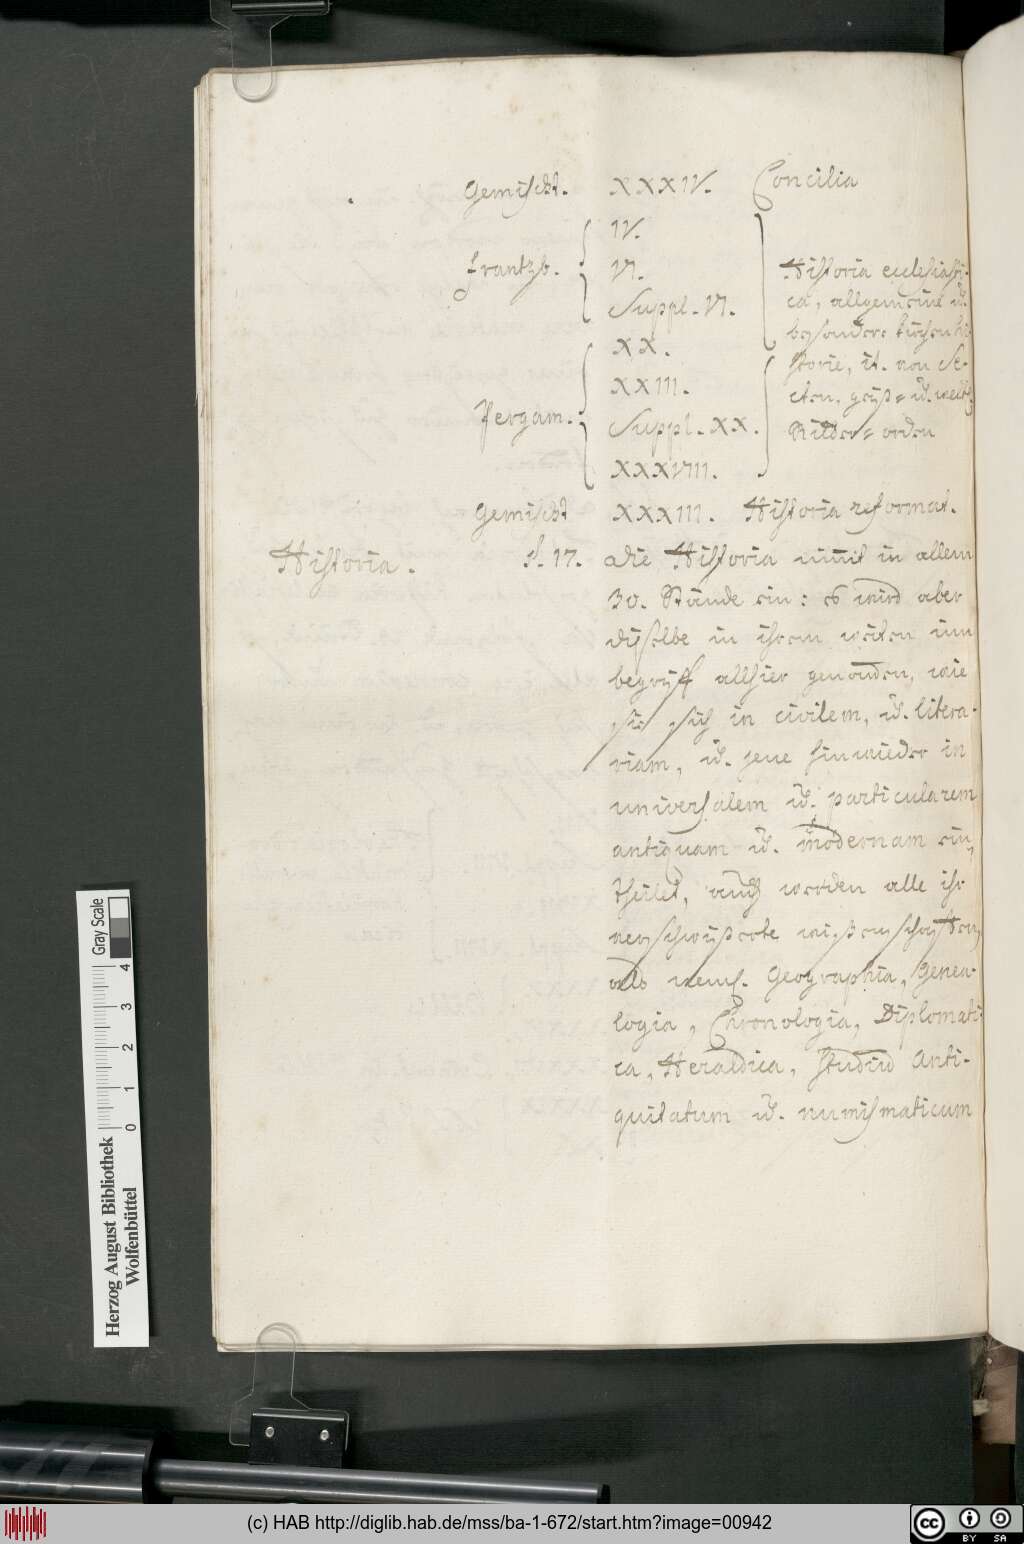 Gemischt. XXXIV. Concilia
Frantzb. IV.
VI.
Suppl. VI.
Pergam. XX.
XXIII.
Suppl. XX.
XXXVIII.
Historia ecclesiasti-
ca, allgemeine u.
besondere Kirchen hi-
storie, it. von Se-
cten, geist= u. weltl.
Ritter= orden
Gemischt XXXIII. Historia reformat.
Historia. §. 17. Die Historia nimt in allem
30. Stände ein: es wird aber
dieselbe in ihrem weiten inn
begriff allhier genommen, wie
sie sich in civilem, u. litera-
riam, u. jene hinwieder in
universalem u. particularem
antiquam u. modernam ein
theilet, auch werden alle ihr
verschwisterte wißenschafften,
als neml. Geographia, Genea-
logia, Chronologia, Diplomati-
ca, Heraldica, Studium Anti-
quitatum u. numismaticum
Gray Scale
4 3 2 1 0
Herzog August Bibliothek
Wolfenbüttel
(c) HAB http://diglib.hab.de/mss/ba-1-672/start.htm?image=00942
cc BY SA